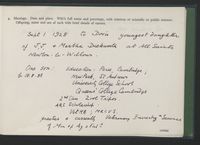 2. Marriage. Date and place. Wife's full name and parentage, with relation of scientific or public interest. Offspring, name and sex of each with brief details of careers.
Sept 1 1928 to Doris youngest daughter
of J.T. & Martha Duckworth at All Saints
Newton-le-Willows
One son. Education - Perse, Cambridge;
b. 18.8.38
New Park, St. Andrews
University College School
Queens' College Cambridge
2nd Class. Tripos
ARC Scholarship
Vet MB, MRCVS.
present a Veterinary Investig. Service
of Min of Ag &